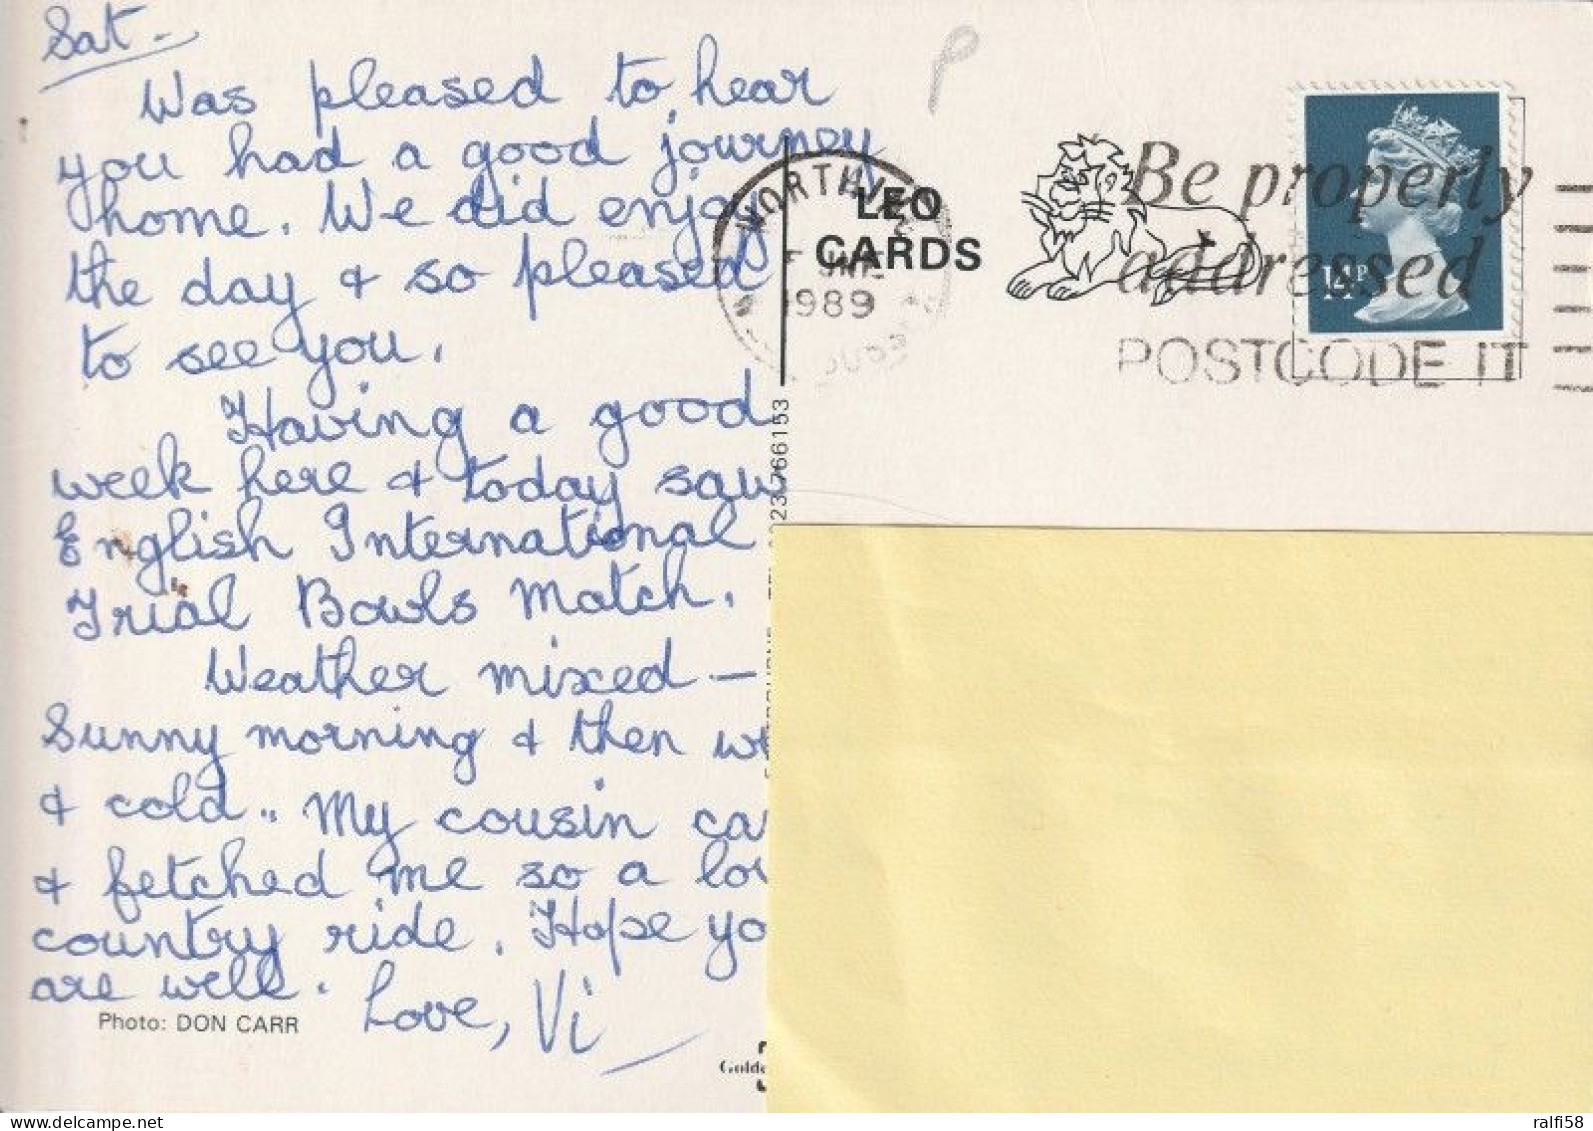 Sat-
Was pleased to hear
you had a good journey
home. We did enjoy
the day & so pleased
to see you.
Having a good
week here & today saw
English International
Trial Bowls Match.
Weather mixed –
Sunny morning & then
& cold.. My cousin
& fetched me so a
country ride. Hope
are well.
Love, Vi
Photo: DON CARR
P
WORTHING
JNE
1989
LEO
CARDS
Be properly
addressed
POSTCODE IT
14P
766153